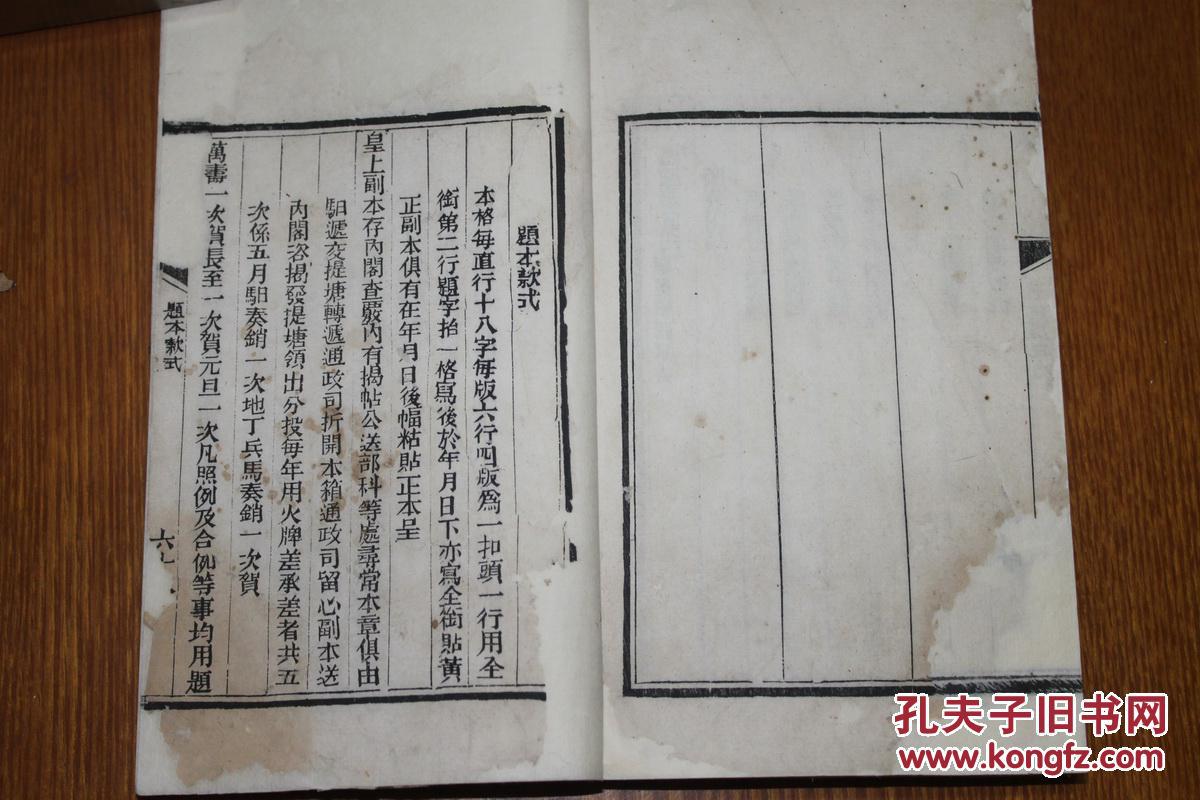 題本款式
本格每直行十八字每版六行四版爲一扣頭一行用全
銜第二行題字抬一格寫後於年月日下亦寫全銜貼黃
正副本俱有在年月日後幅粘貼正本呈
皇上副本存內閣查嚴內有揭帖公送部科等處尋常本章俱由
馹遞交提塘轉遞通政司折開本箱通政司留心副本送
內閣咨揭發提塘領出分投每年用火牌差承差者共五
次係五月馹奏銷一次地丁兵馬奏銷一次賀
萬壽一次賀長至一次賀元旦一次凡照例及合例等事均用題
題本款式
六
孔夫子旧书网
www.kongfz.com